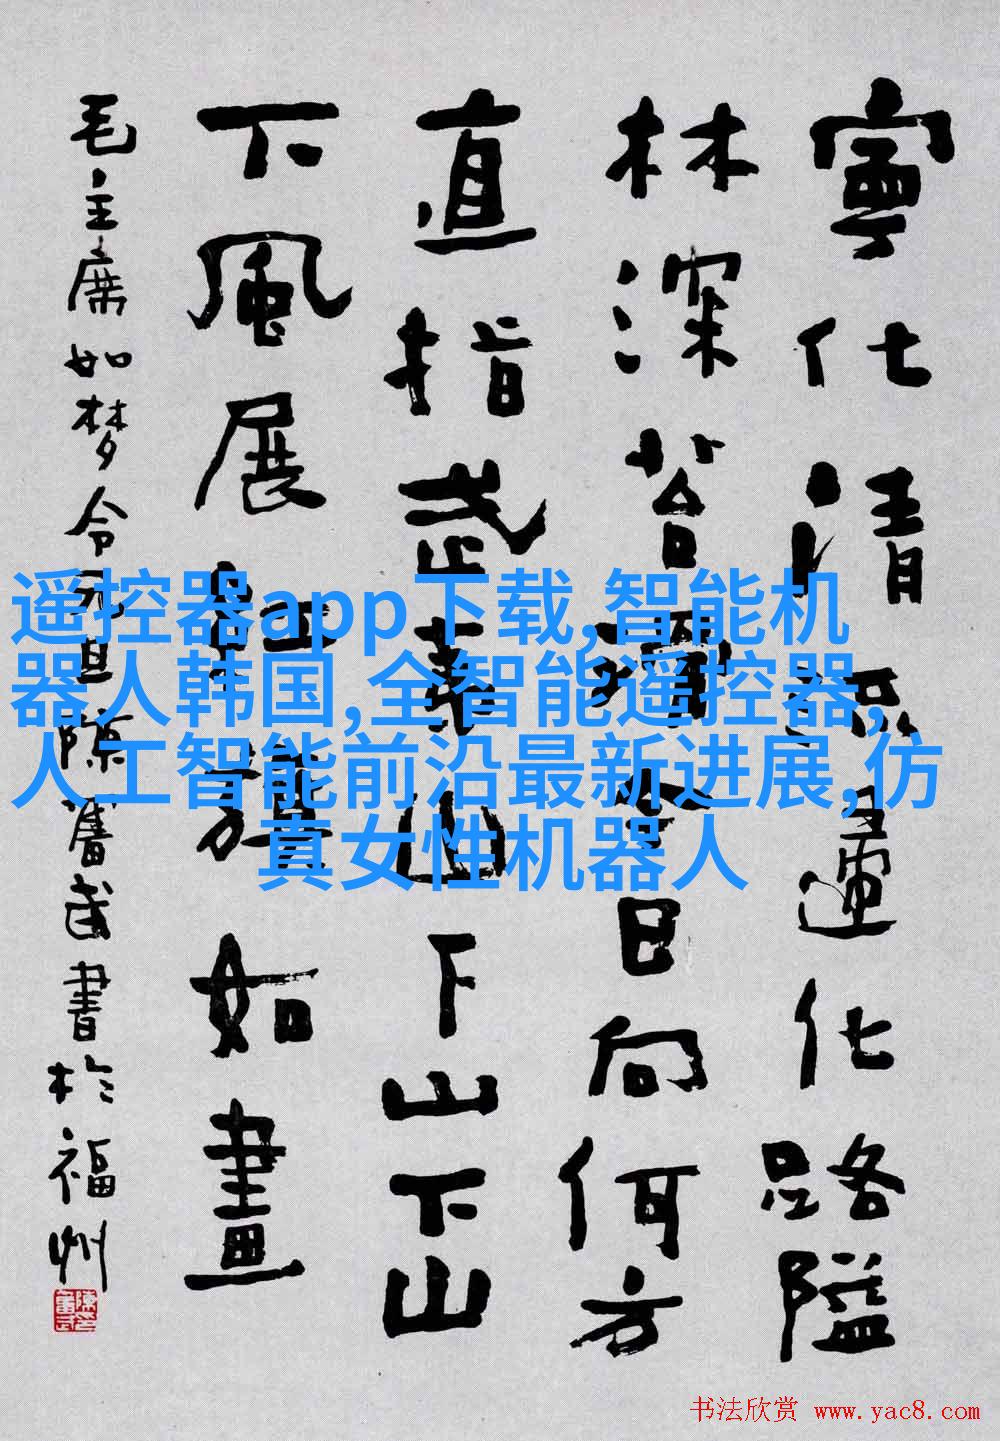 寧化清流歸化路隘
林深苔滑今日向何方
直指武夷山下山下山
下風展紅旗如畫
毛主席如梦令元旦陳奮武書於福州
遥控器app下载,智能机
器人韩国,全智能遥控器,
人工智能前沿最新进展,仿
真女性机器人
书法欣赏 www.yac8.com